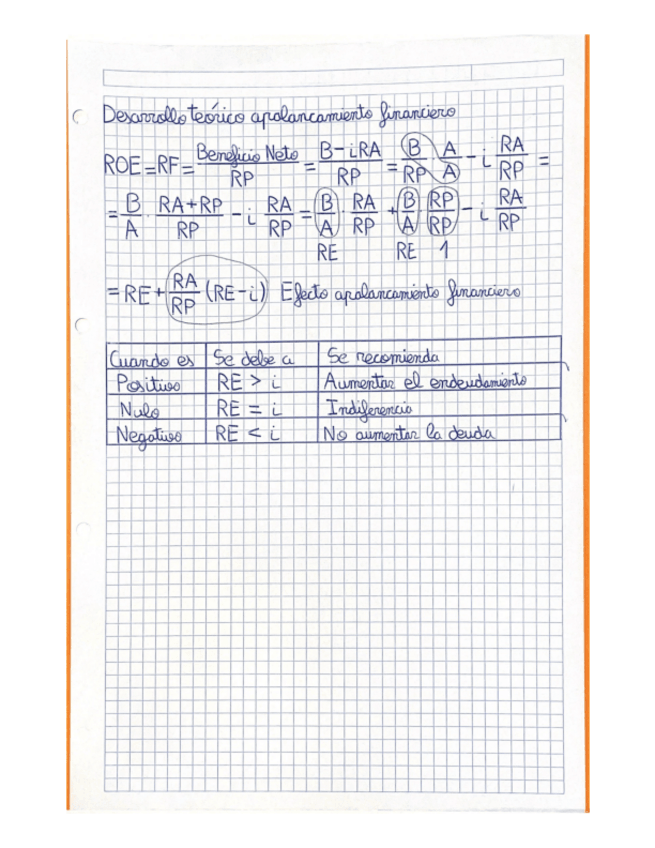 Desarrollo teórico apalancamiento financiero
ROE = RF = Beneficio Neto / RP = B - iRA / RP = B / RP · A / A - i RA / RP =
= B / A · RA + RP / RP - i RA / RP = B / A · RA / RP + B / A · RP / RP - i RA / RP
RE RE 1
= RE + RA / RP (RE - i) Efecto apalancamiento financiero
Cuando es Se debe a Se recomienda
Positivo RE > i Aumentar el endeudamiento
Nulo RE = i Indiferencia
Negativo RE < i No aumentar la deuda